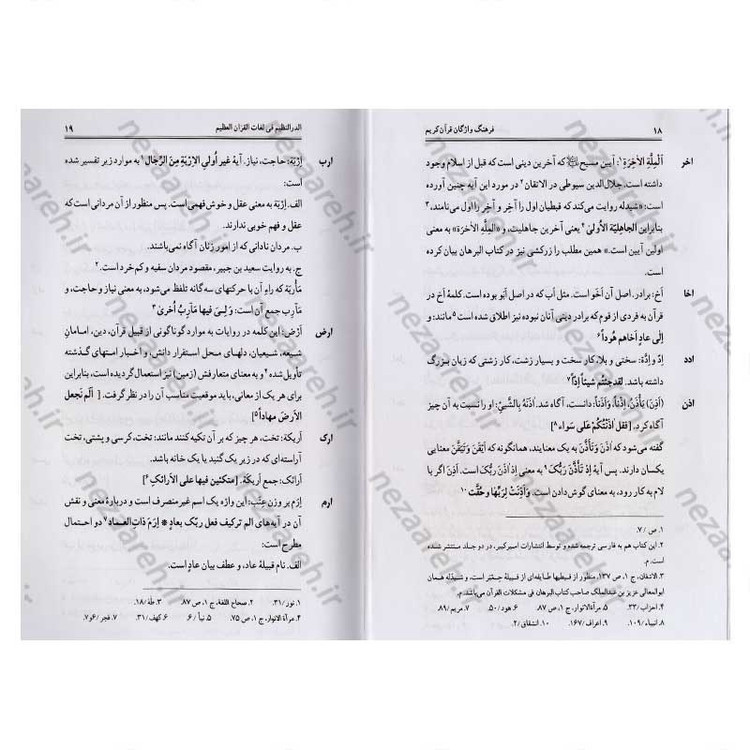 ۱۸
فرهنگ واژگان قرآن کریم
اخر
اَلْمِلَّةِ الْآخِرَة۱: آیین مسیح که آخرین دینی است که قبل از اسلام وجود
داشته است. جلال‌الدین سیوطی در الاتقان۲ در مورد این آیه چنین آورده
است: «شیدله روایت می‌کند که قبطیان اول را آخِر و آخِر را اول می‌نامند،۳
بنابراین الجاهِلیَّةِ الْأولیٰ۴ یعنی آخرین جاهلیت، و «المِلَّةِ الآخرَة» به معنی
اولین آیین است.» همین مطلب را زرکشی نیز در کتاب البرهان بیان کرده
است.
اخا
اَخ: برادر. اصل آن اَخَو است. مثل اَب که در اصل اَبَو بوده است. کلمهٔ اخ در
قرآن به فردی از قوم که برادر دینی آنان نبوده نیز اطلاق شده است۵ مانند: و
اِلی عادٍ اَخاهُم هُوداً۶
ادد
اِدّ و اِدَّة: سختی و بلا، کار سخت و بسیار زشت، کار زشتی که زبان بـزرگ
داشته باشد. لَقَد جِئتُم شَیئاً اِدّاً۷
اذن
(اَذِنَ) یَأْذَنُ، اِذْناً، وَأَذَناً: دانست، آگاه شد. اَذَنَهُ بِالشَّیْءِ: او را نسبت به آن چیز
آگاه کرد. [فَقُل آذَنْتُکُمْ عَلی سَواء۸]
گفته می‌شود که اَذَنَ و تَأَذَّنَ به یک معنایند، همانگونه که اَیْقَنَ وَتَیَقَّنَ معنایی
یکسان دارند. پس آیهٔ اِذْ تَأَذَّنَ رَبُّکَ۹ به معنی اِذْ اَذَنَ رَبُّکَ است. اَذِنَ اگر با
لام به کار رود، به معنای گوش دادن است. وَ اَذِنَتْ لِرَبِّها وَ حُقَّت۱۰
۱. ص /۷.
۲. این کتاب هم به فارسی ترجمه شده و توسط انتشارات امیرکبیر، در دو جلد منتشر شده
است. م.
۳. الاتقان، ج ۱، ص ۱۳۷. منظور از قبطیها طایفه‌ای از قبیلهٔ است، و شیدله همان
ابوالمعالی عزیز بن عبدالملک صاحب کتاب البرهان فی مشکلات القرآن می‌باشد. م.
۴. احزاب /۳۳. ۵. مرآةالانوار، ج ۱، ص ۸۷. ۶. هود /۵۰. ۷. مریم /۸۹.
۸. انبیاء /۱۰۹. ۹. اعراف /۱۶۷. ۱۰. انشقاق /۲.
الدر النظیم فی لغات القرآن العظیم
۱۹
ارب
اِرْبَة: حاجت، نیاز. آیهٔ غَیرِ أُولی الاِرْبَةِ مِنَ الرِّجال۱ به موارد زیر تفسیر شده
است:
الف. اِرْبَة به معنی عقل و خوش‌فهمی است. پس منظور از آن مردانی است که
عقل و فهم خوبی ندارند.
ب. مردان نادانی که از امور زنان آگاه نمی‌باشند.
ج. به روایت سعید بن جبیر، مقصود مردان سفیه و کم‌خرد است.۲
مَأْرُبَة که راءِ آن با حرکتهای سه‌گانه تلفظ می‌شود، به معنی نیاز و حاجت، و
مَآرِب جمع آن است. وَلِـیَ فیها مَآرِبُ اُخریٰ۳
ارض
اَرْض: این کلمه در روایات به موارد گوناگونی از قبیل قرآن، دین، امـامان
شیعه، شیعیان، دلهای محل استقرار دانش، و اخبار امتهای گذشته
تأویل شده۴ و به معنای متعارفش (زمین) نیز استعمال گردیده است، بنابراین
برای هر یک از معانی، باید موقعیت مناسب آن را در نظر گرفت. [اَلَم نَجعَلِ
الاَرضَ مِهاداً۵]
ارک
اَریکَة: تخت، هر چیز که بر آن تکیه کنند مانند: تخت، کرسی و پشتی، تخت
آراسته‌ای که در زیر یک گنبد یا یک خانه باشد.
اَرائک: جمع اَریکَة. [مُتَّکِئینَ فیها عَلَی الاَرائکِ۶]
ارم
اِرَم بر وزن عِنَب: این واژه یک اسم غیر منصرف است و دربارهٔ معنی و نقش
آن در آیه‌های اَلَم تَرکَیفَ فَعَلَ ربُّک بِعادٍ * اِرَمَ ذاتِ العـماد۷ دو احتمال
مطرح است:
الف. نام قبیلهٔ عاد، و عطف بیان عادٍ است.
۱. نور /۳۱. ۲. صحاح اللغة، ج ۱، ص ۸۷. ۳. طهٰ /۱۸.
۴. مرآة الانوار، ج ۱، ص ۷۵. ۵. نبأ /۶. ۶. کهف /۳۱. ۷. فجر /۶و۷.
nezaareh.ir